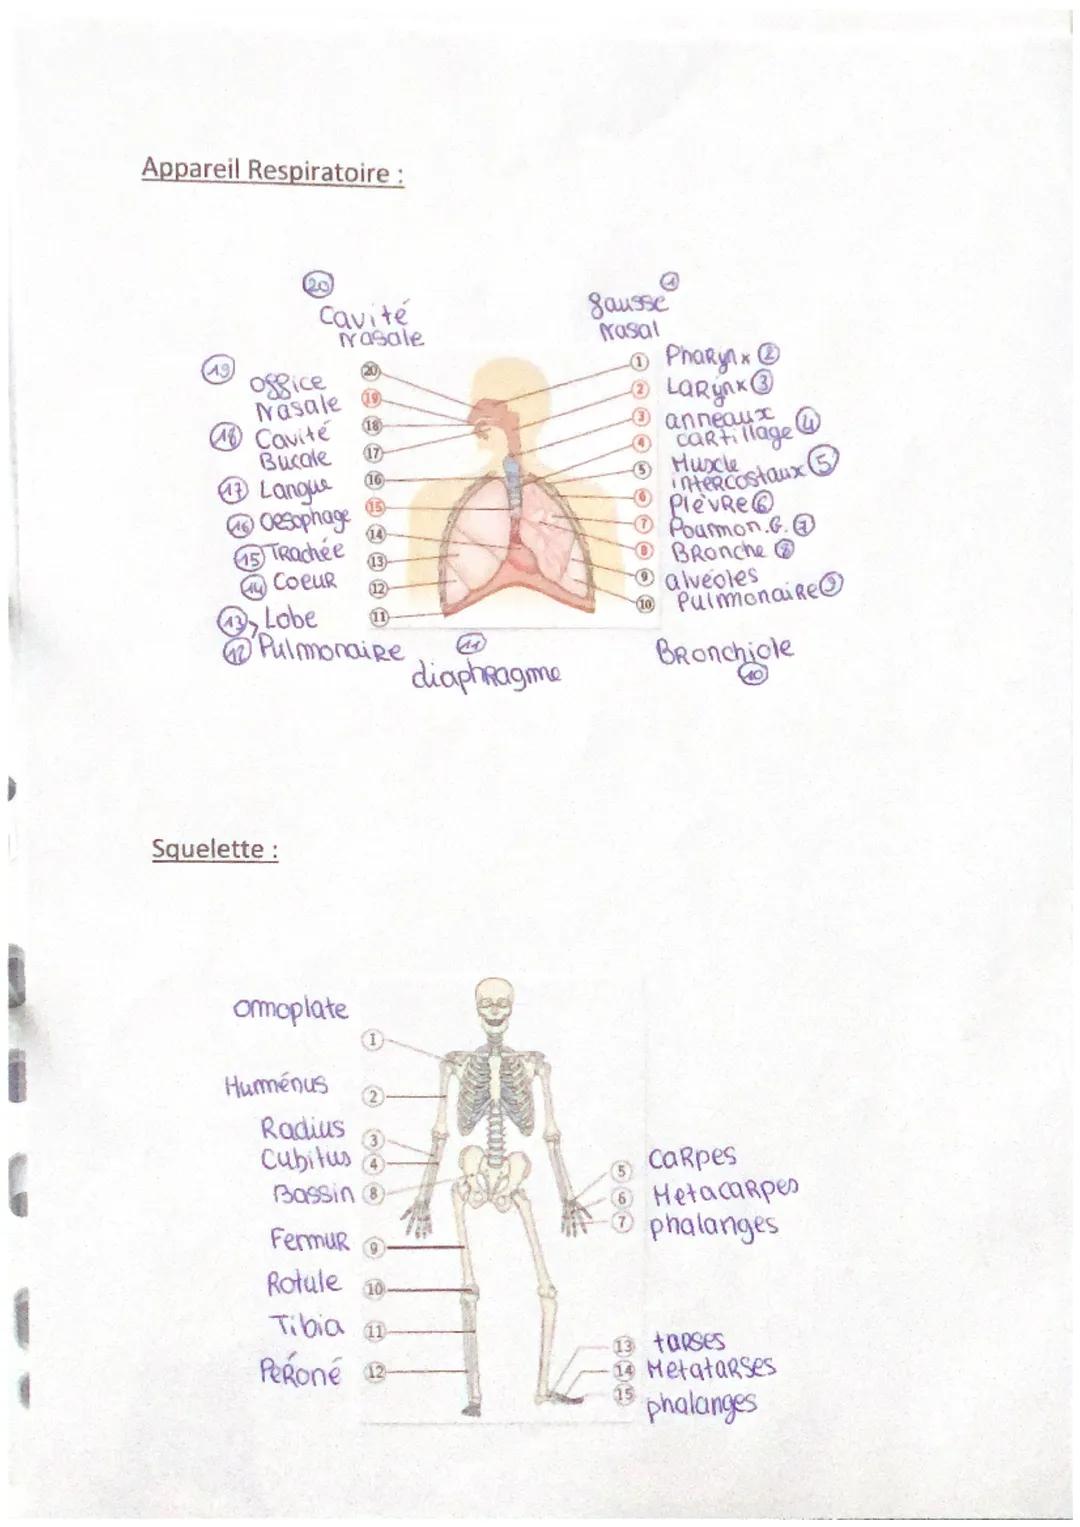 Appareil Respiratoire :
20
Cavité
Nasale
1
gausse
Nasal
19
office
Nasale
18 Cavité
Bucale
17 Langue
16 Oesophage
15 Trachée
14 Coeur
13, Lobe
12 Pulmonaire
11
diaphragme
20
19
18
17
16
15
14
13
12
11
1
2
3
4
5
6
7
8
9
10
Pharynx 2
Larynx 3
anneaux
cartillage 4
Muscle
intercostaux 5
Plèvre 6
Poumon.G. 7
Bronche 8
alvéoles
Pulmonaire 9
Bronchiole
10
Squelette :
omoplate
1
Humménus
2
Radius 3
Cubitus 4
Bassin 8
Fermur 9
Rotule 10
Tibia 11
Péroné 12
5 carpes
6 Metacarpes
7 phalanges
13 tarses
14 Metatarses
15 phalanges